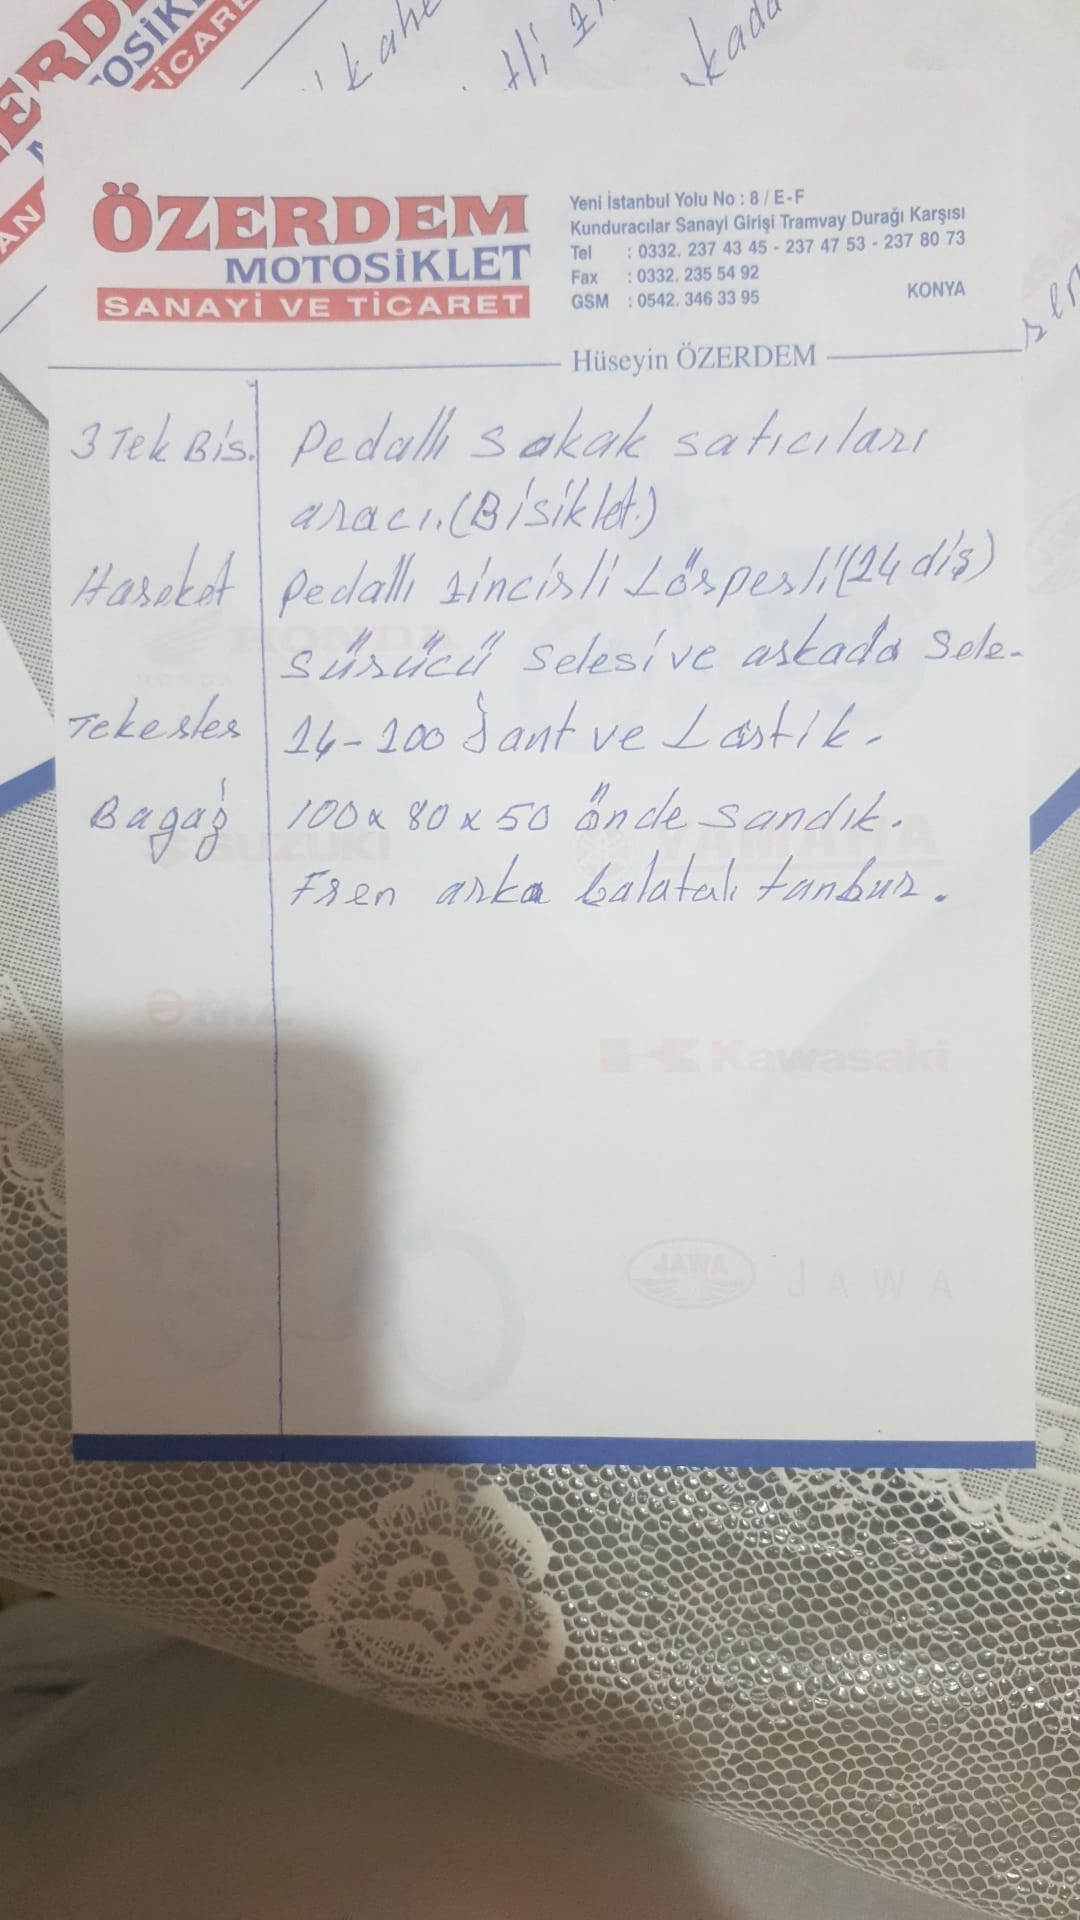 ÖZERDEM
MOTOSİKLET
SANAYİ VE TİCARET
Yeni İstanbul Yolu No : 8 / E-F
Kunduracılar Sanayi Girişi Tramvay Durağı Karşısı
Tel : 0332. 237 43 45 - 237 47 53 - 237 80 73
Fax : 0332. 235 54 92
GSM : 0542. 346 33 95 KONYA
Hüseyin ÖZERDEM
3 Tek Bis. Pedallı sokak satıcıları
aracı. (Bisiklet.)
Hareket Pedallı zincirli Lörperli (24 diş)
sürücü selesi ve arkada Sele.
Tekerler 14-100 Jant ve Lastik.
Bagaj 100x80x50 önde sandık.
Fren arka balatalı tanbur.
HONDA
SUZUKI
YAMAHA
MZ
Kawasaki
JAWA
JAWA